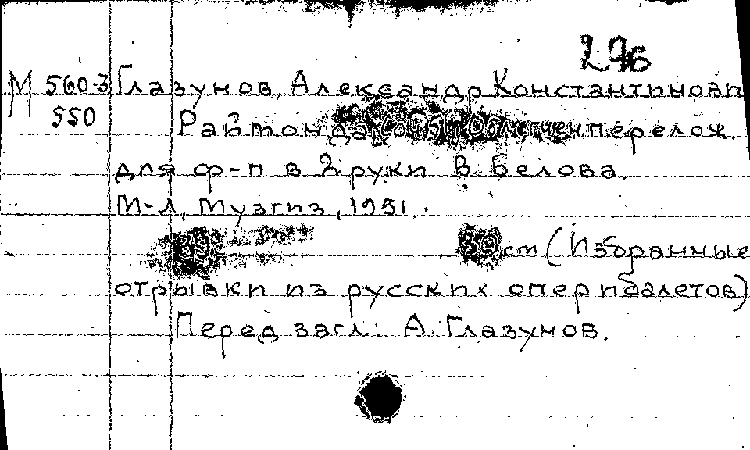 276
М 560-3 Глазунов, Александр Константинович
550 Раймонда перелож.
для ф-п в 2 руки В. Белова.
М-Л, Музгиз, 1951.
39 ст (Избранные
отрывки из русских опер и балетов)
Перед загл: А. Глазунов.